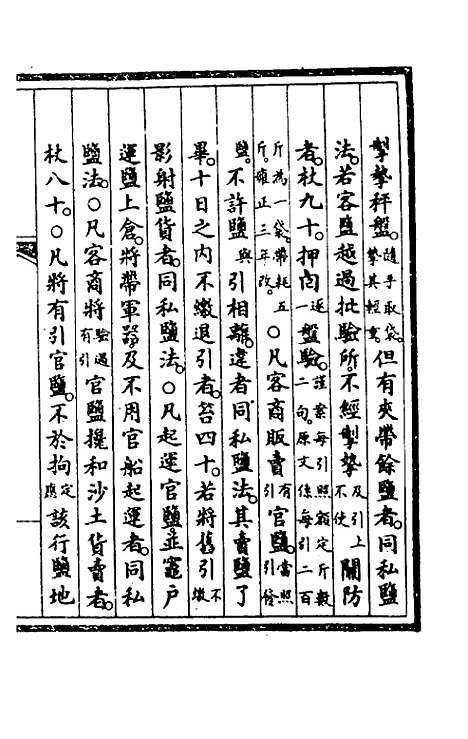 掣摯秤盤隨手取袋摯其輕重但有夾帶餘鹽者同私鹽
法若客鹽越過批驗所不經掣摯及引上不使關防
者杖九十押回逐一盤驗謹案每引照額定斤數二句原文係每引二百
斤為一袋帶耗五斤雍正三年改○凡客商販賣有引官鹽當照引發
鹽不許鹽與引相離違者同私鹽法其賣鹽了
畢十日之內不繳退引者笞四十若將舊引不繳
影射鹽貨者同私鹽法○凡起運官鹽並竈戶
運鹽上倉將帶軍器及不用官船起運者同私
鹽法○凡客商將驗過有引官鹽攙和沙土貨賣者
杖八十○凡將有引官鹽不於拘定應該行鹽地